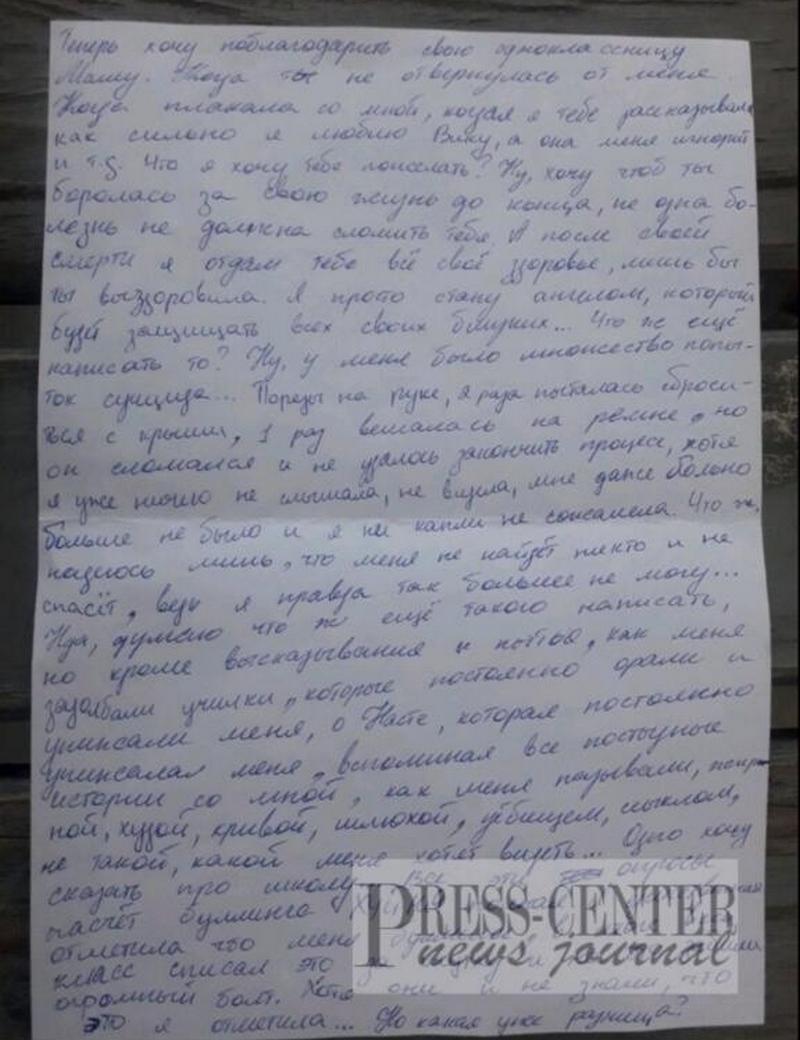 Теперь хочу поблагодарить свою одноклассницу
Машу. Тогда ты не отвернулась от меня.
Когда плакала со мной, когда я тебе рассказывала
как сильно я люблю Вику, а она меня игнорит
и т.д. Что я хочу тебе пожелать? Ну, хочу чтоб ты
боролась за свою жизнь до конца, не одна бо-
лезнь не должна сломить тебя. А после своей
смерти я отдам тебе всё своё здоровье, лишь бы
ты выздоровила. Я просто стану ангелом, который
будет защищать всех своих близких... Что же ещё
написать то? Ну, у меня было множество попы-
ток суицида... Порезы на руке, 2 раза пыталась сброси-
ться с крыши, 1 раз вешалась на ремне, но
он сломался и не удалось закончить процесс, хотя
я уже ничего не слышала, не видела, мне даже больно
больше не было и я ни капли не сожалела. Что ж,
надеюсь лишь, что меня не найдёт никто и не
спасёт, ведь я правда так больше не могу...
Нда, думаю что ж ещё такого написать,
но кроме высказывания и нытья, как меня
задолбали училки, которые постоянно орали и
унижали меня, о Насте, которая постоянно
унижала меня, вспоминая все постыдные
истории со мной, как меня называли,
ной, худой, кривой, шлюхой, уёбищем,
не такой, какой меня хотят видеть... Одно хочу
сказать про школу. Все эти опросы
насчёт буллинга
отметила что меня
класс списал это за
огромный болт. Хотя они и не знали, что
это я отметила... Но какая уже разница?
PRESS-CENTER
news journal